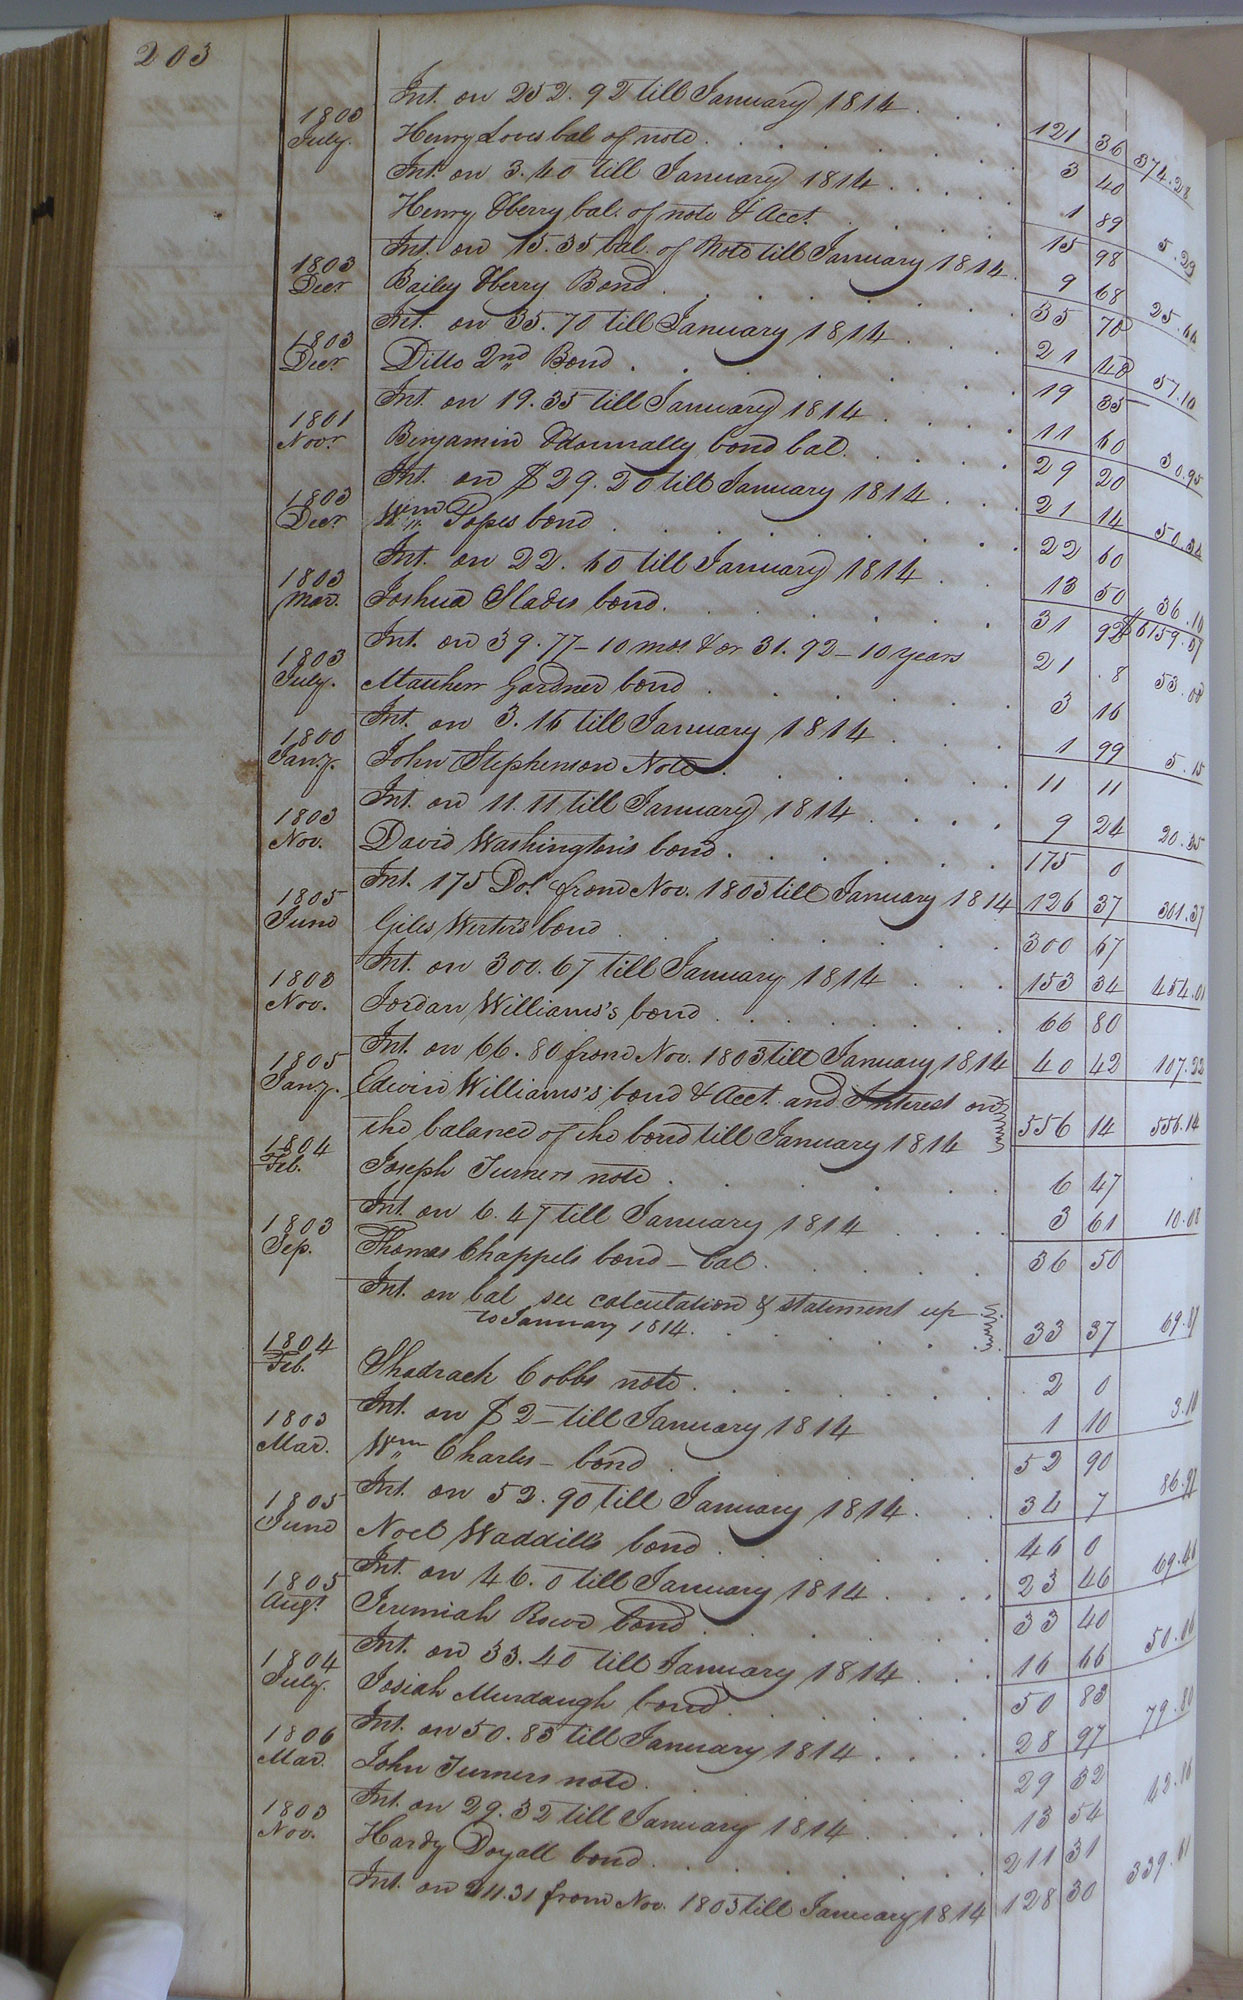 203
Int. on 252. 92 till January 1814 . . . 121 36 374.28
1803 July. Henry Loves bal of note . . . 3 40
Int. on 3. 40 till January 1814 . . . 1 89 5.29
Henry Oberry bal. of note & Acct. . . . 15 98
Int. on 15.35 bal. of Note till January 1814 9 68 25.66
1803 Decr Bailey Oberry Bond . . . 35 70
Int. on 35. 70 till January 1814 . . . 21 48 57.18
1803 Decr Ditto 2nd Bond . . . 19 35
Int. on 19. 35 till January 1814 . . . 11 60 30.95
1801 Novr Benjamin Odonnally bond bal . . . 29 20
Int. on $ 29. 20 till January 1814 . . . 21 14 50.34
1803 Decr Wm Popes bond . . . 22 60
Int. on 22. 60 till January 1814 . . . 13 50 36.10
$6159.37
1803 Mar. Joshua Slades bond . . . 31 92
Int. on 39. 77 – 10 mos. & on 31. 92 – 10 years 21 . 8 53.00
1803 July. Matthew Gardner bond . . . 3 16
Int. on 3. 16 till January 1814 . . . 1 99 5.15
1800 Jany. John Stephenson Note . . . 11 11
Int. on 11. 11 till January 1814 . . . 9 24 20.35
1803 Nov. David Washington's bond . . . 175 0
Int. 175 Dol. from Nov. 1803 till January 1814 126 37 301.37
1805 June Giles bond . . . 300 67
Int. on 300. 67 till January 1814 . . . 153 34 454.01
1803 Nov. Jordan Williams's bond . . . 66 80
Int. on 66. 80 from Nov. 1803 till January 1814 40 42 107.22
1805 Jany. Edwin Williams's bond & Acct. and Interest on
the balance of the bond till January 1814 556 14 556.14
1804 Feb. Joseph Turners note . . . 6 47
Int. on 6. 47 till January 1814 . . . 3 61 10.08
1803 Sep. Thomas Chappels bond – bal . . . 36 50
Int. on bal see calculation & statement up
to January 1814. . . . 33 37 69.87
1804 Feb. Shadrach Cobbs note . . . 2 0
Int. on $ 2 – till January 1814 1 10 3.10
1803 Mar. Wm Charles – bond . . . 52 90
Int. on 52. 90 till January 1814 . . . 34 7 86.97
1805 June Noel Waddills bond . . . 46 0
Int. on 46. 0 till January 1814 . . . 23 46 69.46
1805 Augt Jeremiah bond . . . 33 40
Int. on 33. 40 till January 1814 . . . 16 66 50.06
1804 July. Josiah Murdaugh bond . . . 50 83
Int. on 50. 83 till January 1814 . . . 28 97 79.80
1806 Mar. John Turners note . . . 29 32
Int. on 29. 32 till January 1814 . . . 13 54 42.86
1803 Nov. Hardy Doyall bond . . . 211 31
Int. on 211.31 from Nov. 1803 till January 1814 128 30 339.61